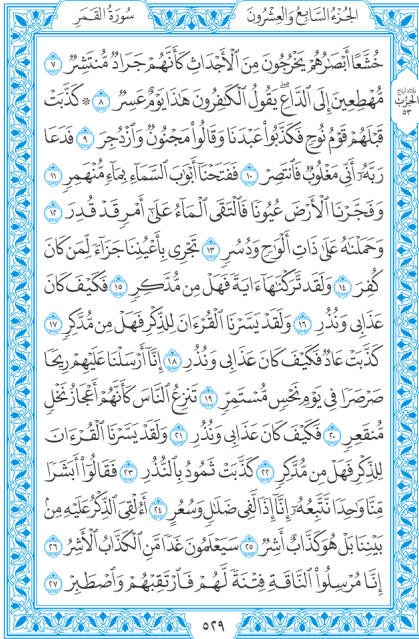 الجزء السابع والعشرون سورة القمر
خُشَّعًا أَبْصَٰرُهُمْ يَخْرُجُونَ مِنَ ٱلْأَجْدَاثِ كَأَنَّهُمْ جَرَادٌ مُّنتَشِرٌ ٧
مُّهْطِعِينَ إِلَى ٱلدَّاعِ ۖ يَقُولُ ٱلْكَٰفِرُونَ هَٰذَا يَوْمٌ عَسِرٌ ٨ ۞ كَذَّبَتْ
قَبْلَهُمْ قَوْمُ نُوحٍ فَكَذَّبُوا۟ عَبْدَنَا وَقَالُوا۟ مَجْنُونٌ وَٱزْدُجِرَ ٩ فَدَعَا
رَبَّهُۥٓ أَنِّى مَغْلُوبٌ فَٱنتَصِرْ ١٠ فَفَتَحْنَآ أَبْوَٰبَ ٱلسَّمَآءِ بِمَآءٍ مُّنْهَمِرٍ ١١
وَفَجَّرْنَا ٱلْأَرْضَ عُيُونًا فَٱلْتَقَى ٱلْمَآءُ عَلَىٰٓ أَمْرٍ قَدْ قُدِرَ ١٢
وَحَمَلْنَٰهُ عَلَىٰ ذَاتِ أَلْوَٰحٍ وَدُسُرٍ ١٣ تَجْرِى بِأَعْيُنِنَا جَزَآءً لِّمَن كَانَ
كُفِرَ ١٤ وَلَقَد تَّرَكْنَٰهَآ ءَايَةً فَهَلْ مِن مُّدَّكِرٍ ١٥ فَكَيْفَ كَانَ
عَذَابِى وَنُذُرِ ١٦ وَلَقَدْ يَسَّرْنَا ٱلْقُرْءَانَ لِلذِّكْرِ فَهَلْ مِن مُّدَّكِرٍ ١٧
كَذَّبَتْ عَادٌ فَكَيْفَ كَانَ عَذَابِى وَنُذُرِ ١٨ إِنَّآ أَرْسَلْنَا عَلَيْهِمْ رِيحًا
صَرْصَرًا فِى يَوْمِ نَحْسٍ مُّسْتَمِرٍّ ١٩ تَنزِعُ ٱلنَّاسَ كَأَنَّهُمْ أَعْجَازُ نَخْلٍ
مُّنقَعِرٍ ٢٠ فَكَيْفَ كَانَ عَذَابِى وَنُذُرِ ٢١ وَلَقَدْ يَسَّرْنَا ٱلْقُرْءَانَ
لِلذِّكْرِ فَهَلْ مِن مُّدَّكِرٍ ٢٢ كَذَّبَتْ ثَمُودُ بِٱلنُّذُرِ ٢٣ فَقَالُوٓا۟ أَبَشَرًا
مِّنَّا وَٰحِدًا نَّتَّبِعُهُۥٓ إِنَّآ إِذًا لَّفِى ضَلَٰلٍ وَسُعُرٍ ٢٤ أَءُلْقِىَ ٱلذِّكْرُ عَلَيْهِ مِنۢ
بَيْنِنَا بَلْ هُوَ كَذَّابٌ أَشِرٌ ٢٥ سَيَعْلَمُونَ غَدًا مَّنِ ٱلْكَذَّابُ ٱلْأَشِرُ ٢٦
إِنَّا مُرْسِلُوا۟ ٱلنَّاقَةِ فِتْنَةً لَّهُمْ فَٱرْتَقِبْهُمْ وَٱصْطَبِرْ ٢٧
٥٢٩
الحزب
٥٣